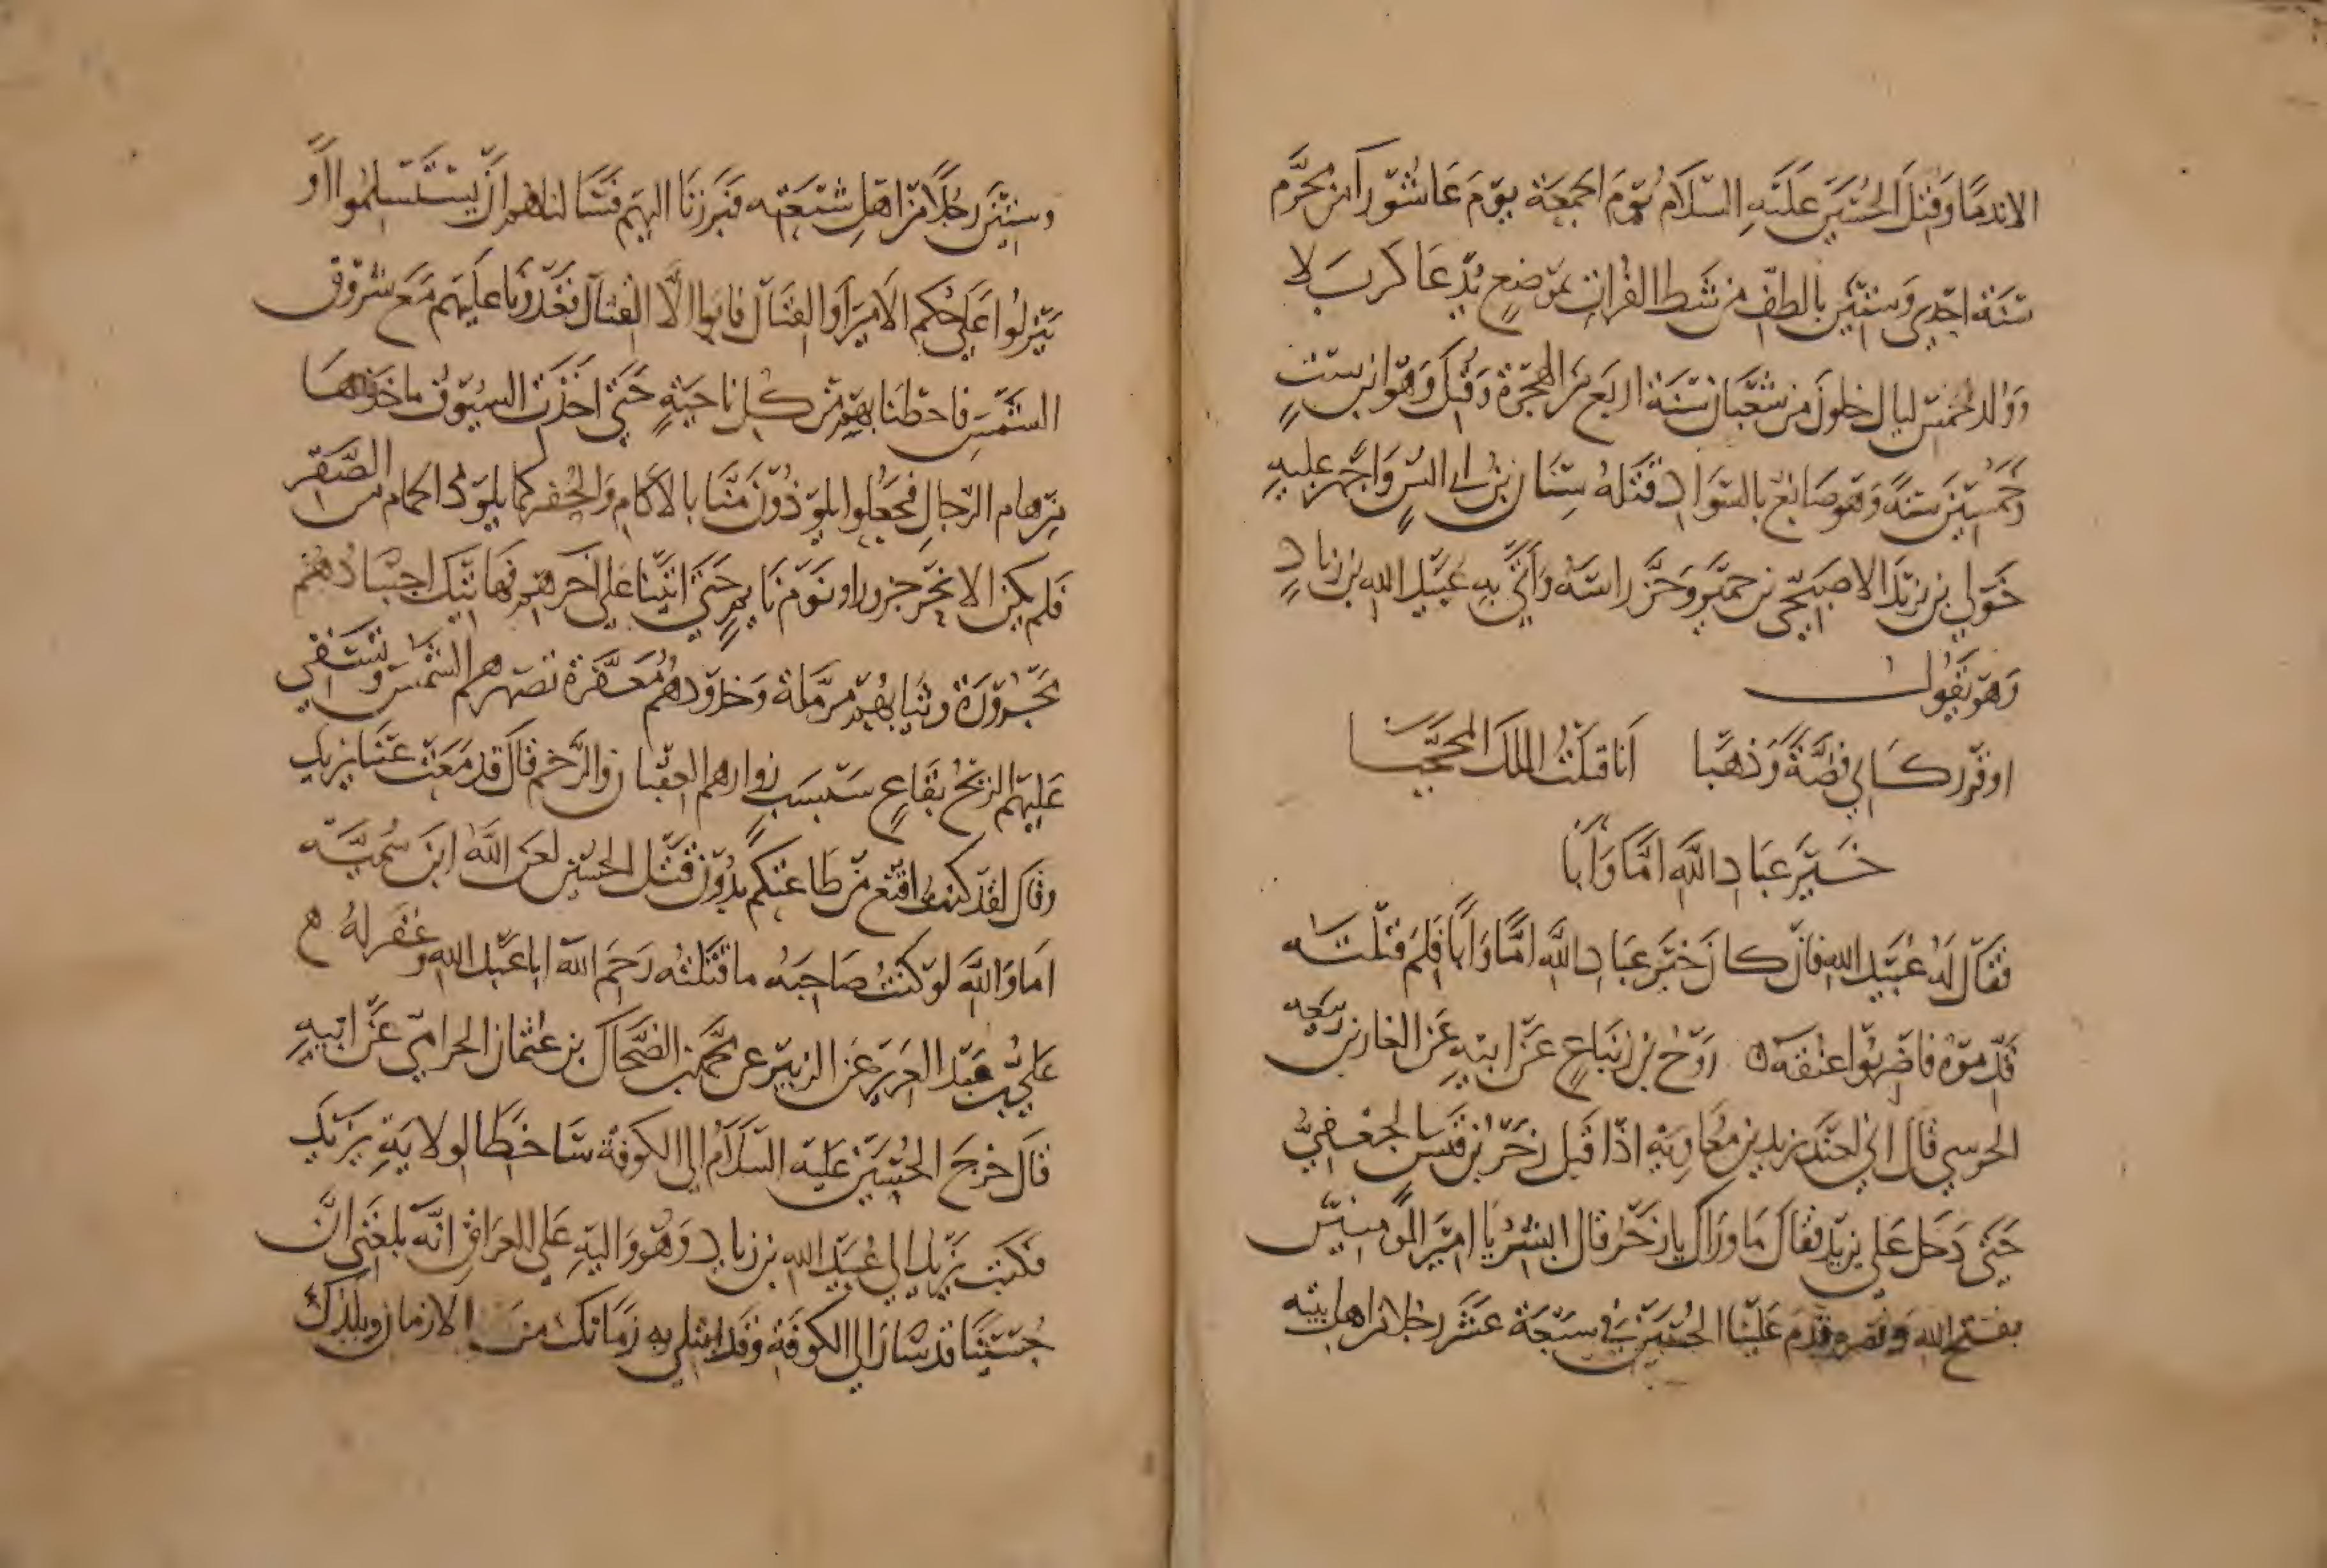 الا ندمًا وَقُتِلَ الحُسَين عَلَيْهِ السّلَام يَوْمَ الجمعَة يوم عَاشورآ من محرَّم
سَنَة احدى وَستين بالطف من شط الفرات بموضع يُدعَا كربَلا
وَوُلد لخمس ليال خلونَ من شعبَان سَنَة اربَع منَ الهجرة وَقُتِلَ وَهو ابن ستٍ
وَخَمْسين سَنَةً وَهو صَابغ بالسوَاد قتلهُ سِنَان بن ابي انسٍ وَاجهَز عليهِ
خَوَلي بن يزيد الاصبَحي من حمير وَحَزَّ راسَهُ وَأتي بهِ عُبَيد الله بن زيادٍ
وَهوَ يَقول
اوقر ركَابي فضَّةً وَذهَبَا انا قتلتُ الملكَ المحجَّبَا
خَيرَ عبَاد اللَّه امَّا وَأبَا
فقَالَ لهُ عُبَيد الله فان كانَ خيَر عبَاد اللَّه امًّا وَابًا فلم قتَلته
قَدموهُ فاضربُوا عنقه رَوح بن زنبَاعٍ عَن ابيه عَن الغاز بن ربيعه
الحرسي قالَ اني لعندَ يزيد بن معَاويَة اذ اقبل زحَر بن قيس الجعفيُّ
حَتى دَخل عَلى يزيد فقالَ مَا ورَاكَ يا زحَر قال ابشر يا اميَر المومنين
بفتح الله وَنصره قدم عَلينا الحُسَين في سَبعَة عَشر رجلا من اهل بيته
وستين رجُلاً من اهل شيعَته فبَرزنَا اليهم فسَالناهم ان يستسلمُوا او
ينزلُوا عَلى حُكم الامير او القتَال فابوا الَّا القتال فغَدونَا علَيهم مَع شروق
الشمس فاحطنا بهم من كل ناحيَةٍ حَتى اخذت السيُوف ماخذهَا
من هام الرّجالِ فجعَلوا يلوذُون منَّا بالاكام وَالحُفر كما يلوذ الحمام من الصَّقر
فلم يكن الا نحرَ جزور او نَومَ نَايم حَتى اتينا عَلى اخرهم فهَاتيك اجسَادهُم
مجَرَّدَة وثيَابهُم مرمَّلة وَخدُودهم مُعَفَّرة تصهرهم الشمس وَتسفي
عَليهم الريحُ بقاعٍ سَبسَبٍ زوارهم العقبان والرَّخم قال قد مَعَت عَينا يزيد
وقال لقد كنتُ اقنع من طَاعتكم بدُون قتل الحسَين لعَن اللَّهُ ابن سُميَّه
اما وَاللَّه لو كنتُ صَاحبَه ما قتلتُه رَحمَ الله ابا عَبد الله وغفَر لهُ
عَلي بن عَبد العَزيز عَن الزبيَر عن محمد بن الضحَّاك بن عثمان الحزامي عَن ابيهِ
قالَ خرجَ الحُسَين عَليه السَّلَامُ الى الكوفة سَاخِطًا لولايَةِ يزيَد
فكتبَ يزيد الى عُبَيد الله بن زياد وَهوَ واليه عَلى العرَاق انَّه بلغَني انَّ
حُسَينًا قد سَارَ الى الكوفة وَقد ابتلي به زمَانكَ منَ الازمان وبلدكَ